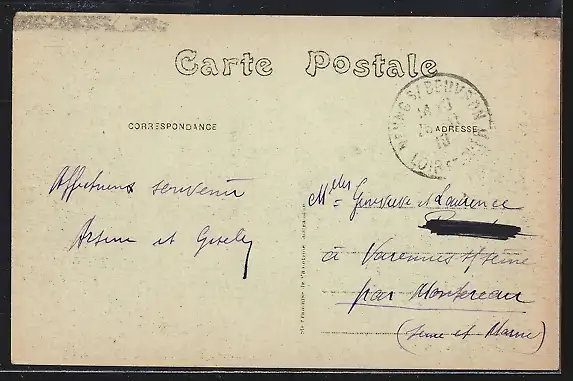 Carte Postale
CORRESPONDANCE
ADRESSE
NEUNG S/ BEUVRON
LOIR-ET-CHER
Affectueux souvenir
Arsène et Gisèle
Melles Geneviève et Laurence
à Varennes s/ Seine
par Montereau
(Seine et Marne)